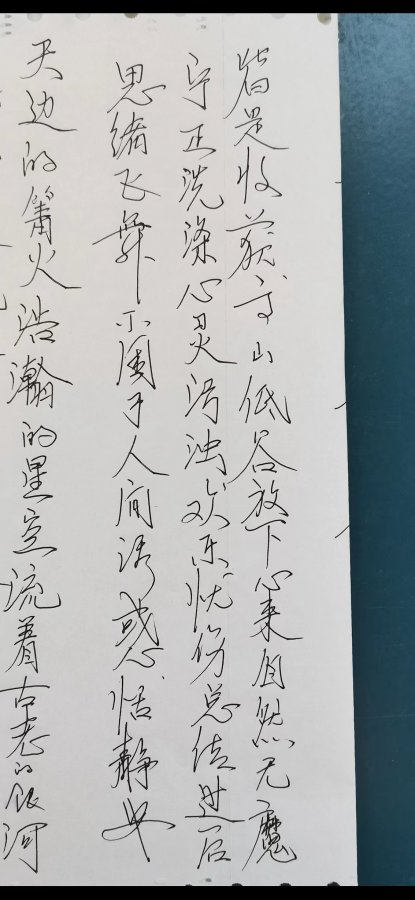 天边的篝火浩瀚的星空流着古老的银河
思绪飞舞不于人间诱惑恬静安
宁正洗涤心灵污浊欢乐忧伤总结过后
皆是收获高山低谷放下心来自然无魔